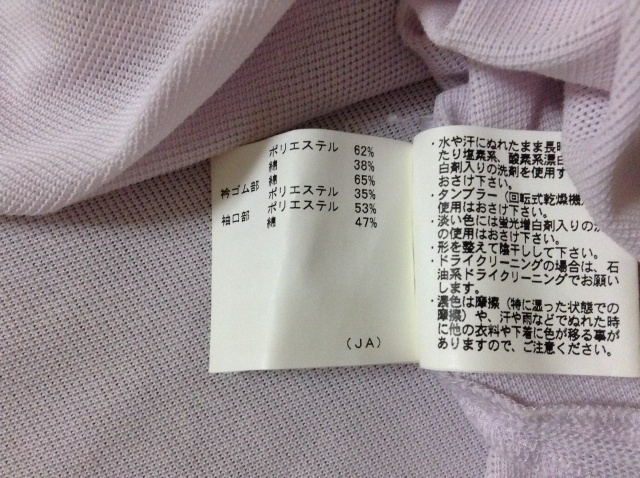 ポリエステル 62%
綿 38%
衿ゴム部 綿 65%
ポリエステル 35%
袖口部 ポリエステル 53%
綿 47%
(JA)
・水や汗にぬれたまま長時
たり塩素系、酸素系漂白
白剤入りの洗剤を使用す
おさけ下さい。
・タンブラー(回転式乾燥機
使用はおさけ下さい。
・淡い色には蛍光増白剤入りの
の使用はおさけ下さい。
・形を整えて陰干しして下さい。
・ドライクリーニングの場合は、石
油系ドライクリーニングでお願い
します。
・濃色は摩擦(特に湿った状態での
摩擦)や、汗や雨などでぬれた時
に他の衣料や下着に色が移る事が
ありますので、ご注意ください。